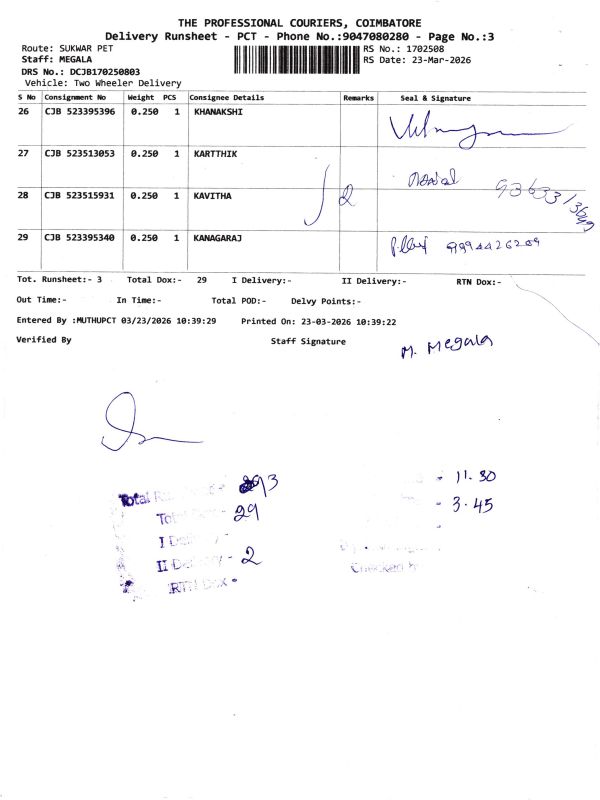 THE PROFESSIONAL COURIERS, COIMBATORE
Delivery Runsheet - PCT - Phone No.:9047080280 - Page No.:3
Route: SUKWAR PET RS No.: 1702508
Staff: MEGALA RS Date: 23-Mar-2026
DRS No.: DCJB170250803
Vehicle: Two Wheeler Delivery
S No Consignment No Weight PCS Consignee Details Remarks Seal & Signature
26 CJB 523395396 0.250 1 KHANAKSHI
27 CJB 523513053 0.250 1 KARTTHIK
28 CJB 523515931 0.250 1 KAVITHA 2
29 CJB 523395340 0.250 1 KANAGARAJ 9994426209
Tot. Runsheet:- 3 Total Dox:- 29 I Delivery:- II Delivery:- RTN Dox:-
Out Time:- In Time:- Total POD:- Delvy Points:-
Entered By :MUTHUPCT 03/23/2026 10:39:29 Printed On: 23-03-2026 10:39:22
Verified By Staff Signature
M. Megala
Total - 3 - 11.30
Total - 29 - 3.45
I Delivery -
II Delivery - 2
RTN Dox - Checked